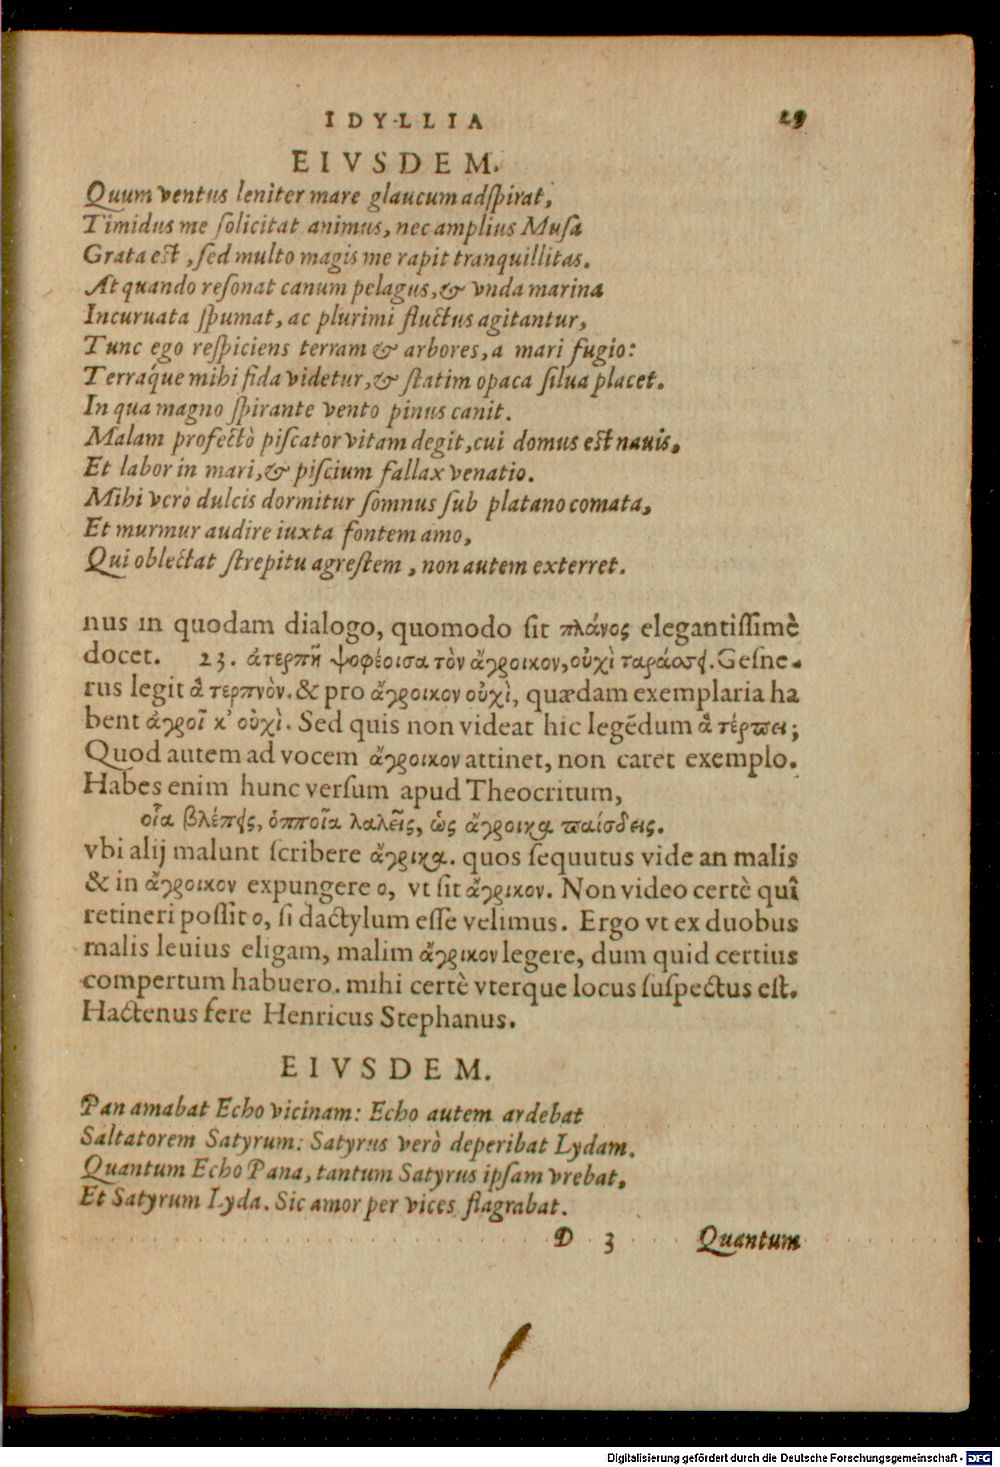 IDYLLIA 29
EIVSDEM.
Quum ventus leniter mare glaucum adspirat,
Timidus me solicitat animus, nec amplius Musa
Grata est, sed multo magis me rapit tranquillitas.
At quando resonat canum pelagus, & vnda marina
Incuruata spumat, ac plurimi fluctus agitantur,
Tunc ego respiciens terram & arbores, a mari fugio:
Terráque mihi fida videtur, & statim opaca silua placet.
In qua magno spirante vento pinus canit.
Malam profectò piscator vitam degit, cui domus est nauis,
Et labor in mari, & piscium fallax venatio.
Mihi verò dulcis dormitur somnus sub platano comata,
Et murmur audire iuxta fontem amo,
Qui oblectat strepitu agrestem, non autem exterret.
nus in quodam dialogo, quomodo sit πλάνος elegantissimè
docet. 23. ἀτερπῆ ψοφέοισα τὸν ἄγροικον, οὐχὶ ταράσσει. Gesne-
rus legit ἃ τερπνὸν. & pro ἄγροικον οὐχὶ, quædam exemplaria ha
bent ἀγροῖ κ' οὐχὶ. Sed quis non videat hic legēdum ἃ τέρπει;
Quod autem ad vocem ἄγροικον attinet, non caret exemplo.
Habes enim hunc versum apud Theocritum,
οἷα βλέπεις, ὁπποῖα λαλεῖς, ὡς ἄγροικα παίσδεις.
vbi alij malunt scribere ἄγρικα. quos sequutus vide an malis
& in ἄγροικον expungere ο, vt sit ἄγρικον. Non video certè quî
retineri possit ο, si dactylum esse velimus. Ergo vt ex duobus
malis leuius eligam, malim ἄγρικον legere, dum quid certius
compertum habuero. mihi certè vterque locus suspectus est.
Hactenus fere Henricus Stephanus.
EIVSDEM.
Pan amabat Echo vicinam: Echo autem ardebat
Saltatorem Satyrum: Satyrus verò deperibat Lydam.
Quantum Echo Pana, tantum Satyrus ipsam vrebat,
Et Satyrum Lyda. Sic amor per vices flagrabat.
D 3 Quantum
Digitalisierung gefördert durch die Deutsche Forschungsgemeinschaft - DFG